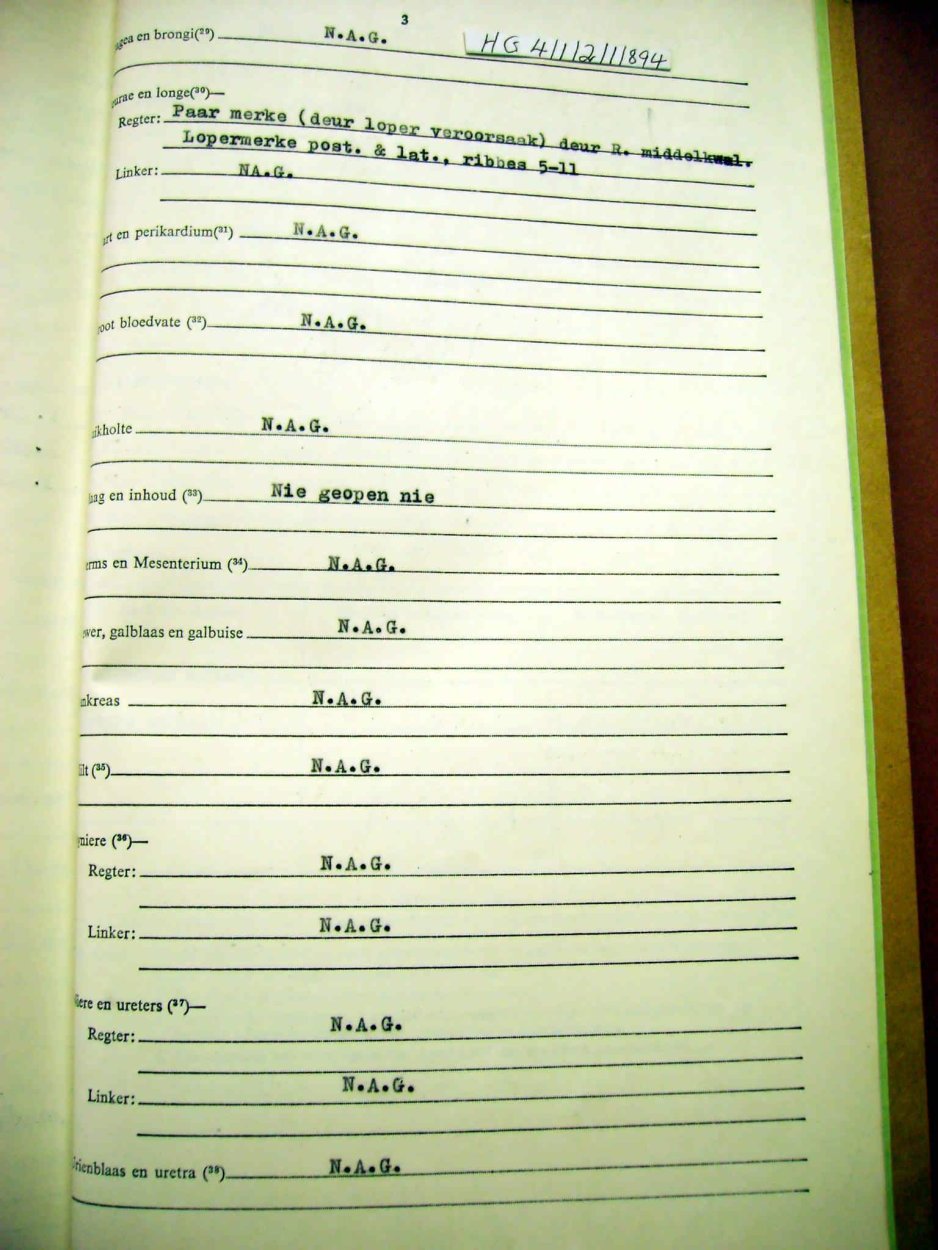 3
en brongi(²⁹) N.A.G.
HG 4/1/2/1/1894
en longe(³⁰)—
Regter: Paar merke (deur loper veroorsaak) deur R. middelkwal.
Lopermerke post. & lat., ribbes 5-11
Linker: NA.G.
en perikardium(³¹) N.A.G.
oot bloedvate (³²) N.A.G.
ikholte N.A.G.
aag en inhoud (³³) Nie geopen nie
erms en Mesenterium (³⁴) N.A.G.
wer, galblaas en galbuise N.A.G.
nkreas N.A.G.
ilt (³⁵) N.A.G.
niere (³⁶)—
Regter: N.A.G.
Linker: N.A.G.
iere en ureters (³⁷)—
Regter: N.A.G.
Linker: N.A.G.
rienblaas en uretra (³⁸) N.A.G.